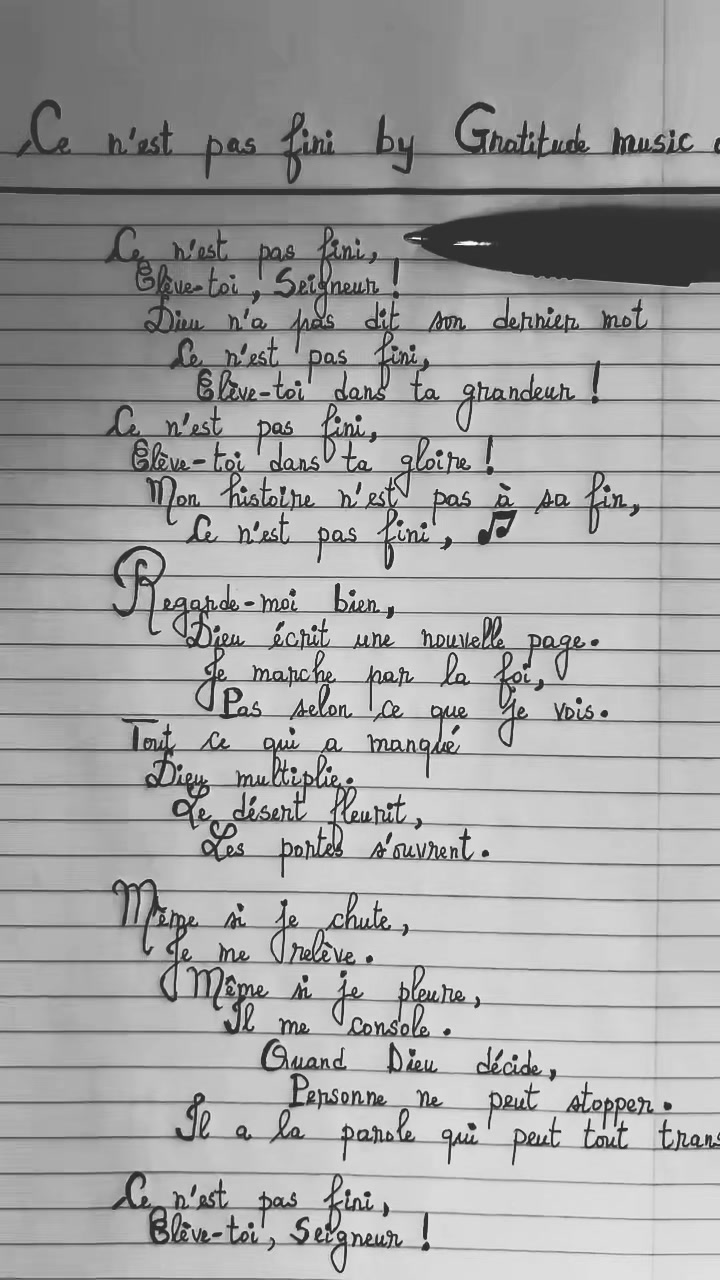 Ce n'est pas fini by Gratitude music
Ce n'est pas fini,
Elève-toi, Seigneur !
Dieu n'a pas dit son dernier mot
Ce n'est pas fini,
Elève-toi dans ta grandeur !
Ce n'est pas fini,
Elève-toi dans ta gloire !
Mon histoire n'est pas à sa fin,
Ce n'est pas fini, 🎵
Regarde-moi bien,
Dieu écrit une nouvelle page.
Je marche par la foi,
Pas selon ce que je vois.
Tout ce qui a manqué
Dieu multiplie.
Le désert fleurit,
Les portes s'ouvrent.
Même si je chute,
Je me relève.
Même si je pleure,
Il me console.
Quand Dieu décide,
Personne ne peut stopper.
Il a la parole qui peut tout trans
Ce n'est pas fini,
Elève-toi, Seigneur !